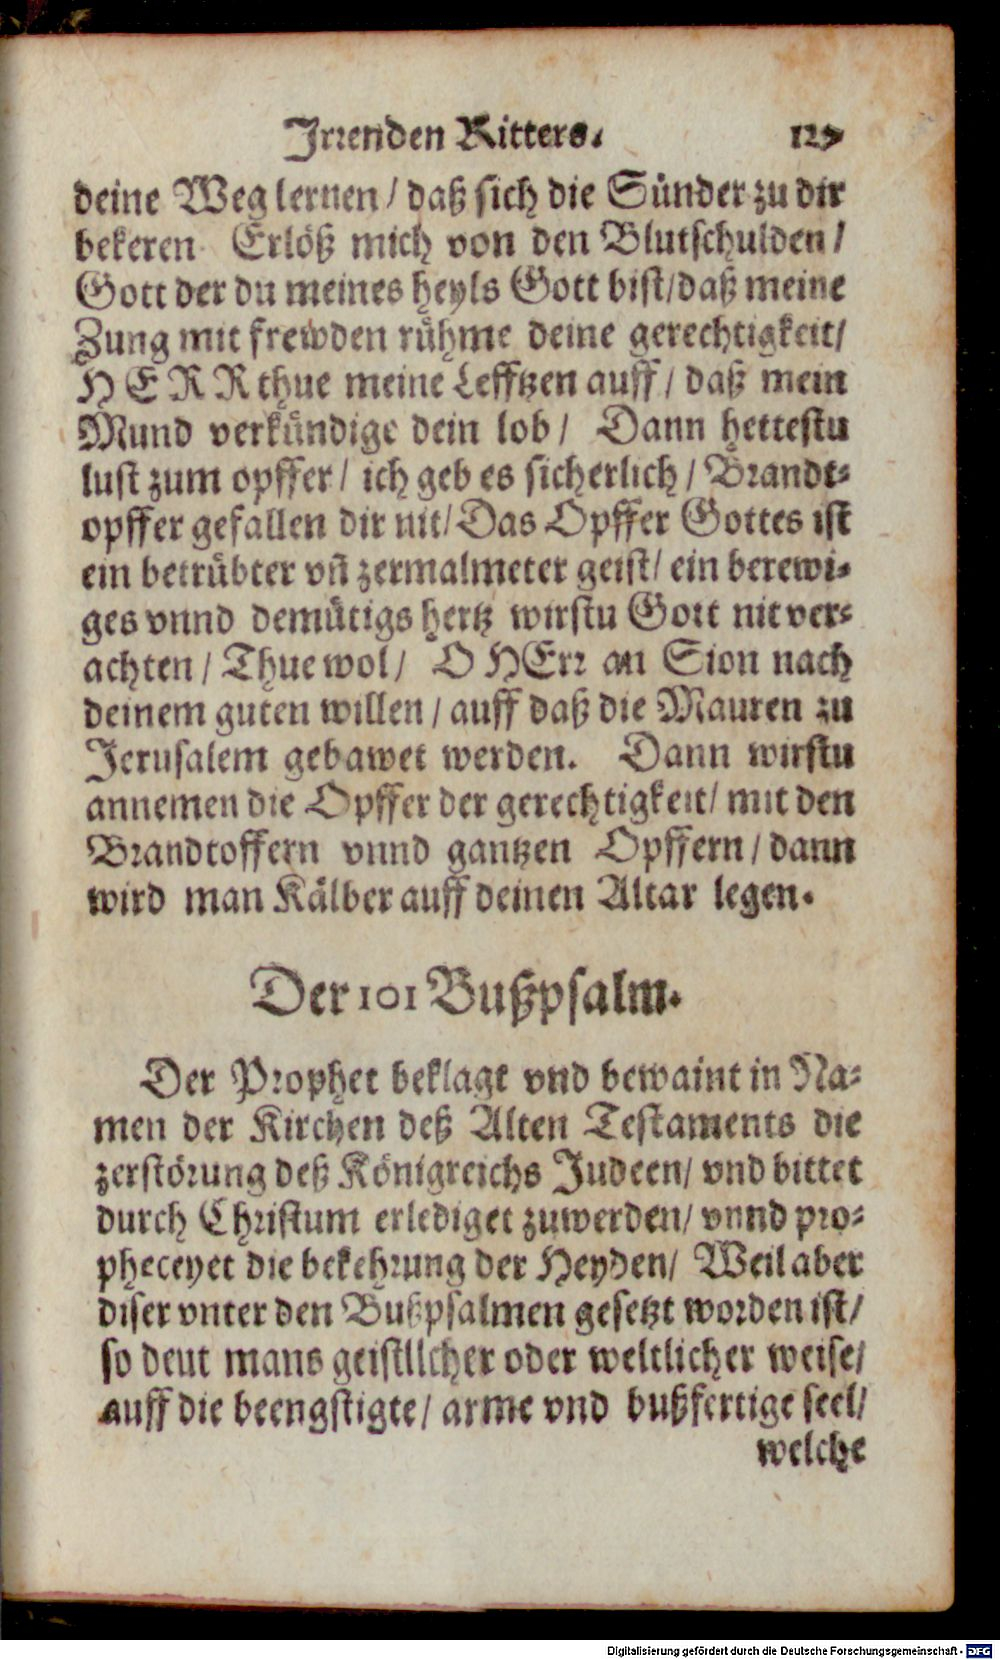 Irrenden Ritters. 127
deine Weg lernen / daß sich die Sünder zu dir
bekeren Erlöß mich von den Blutschulden /
Gott der du meines heyls Gott bist / daß meine
Zung mit frewden rühme deine gerechtigkeit /
HERR thue meine Lefftzen auff / daß mein
Mund verkündige dein lob / Dann hettestu
lust zum opffer / ich geb es sicherlich / Brandt⸗
opffer gefallen dir nit / Das Opffer Gottes ist
ein betrübter vñ zermalmeter geist / ein berewi⸗
ges vnnd demütigs hertz wirstu Gott nit ver⸗
achten / Thue wol / O HErr an Sion nach
deinem guten willen / auff daß die Mauren zu
Jerusalem gebawet werden. Dann wirstu
annemen die Opffer der gerechtigkeit / mit den
Brandtoffern vnnd gantzen Opffern / dann
wird man Kälber auff deinen Altar legen.
Der 101 Bußpsalm.
Der Prophet beklagt vnd bewaint in Na⸗
men der Kirchen deß Alten Testaments die
zerstörung deß Königreichs Judeen / vnd bittet
durch Christum erlediget zuwerden / vnnd pro⸗
pheceyet die bekehrung der Heyden / Weil aber
diser vnter den Bußpsalmen gesetzt worden ist /
so deut mans geistlicher oder weltlicher weise /
auff die beengstigte / arme vnd bußfertige seel /
welche
Digitalisierung gefördert durch die Deutsche Forschungsgemeinschaft - DFG